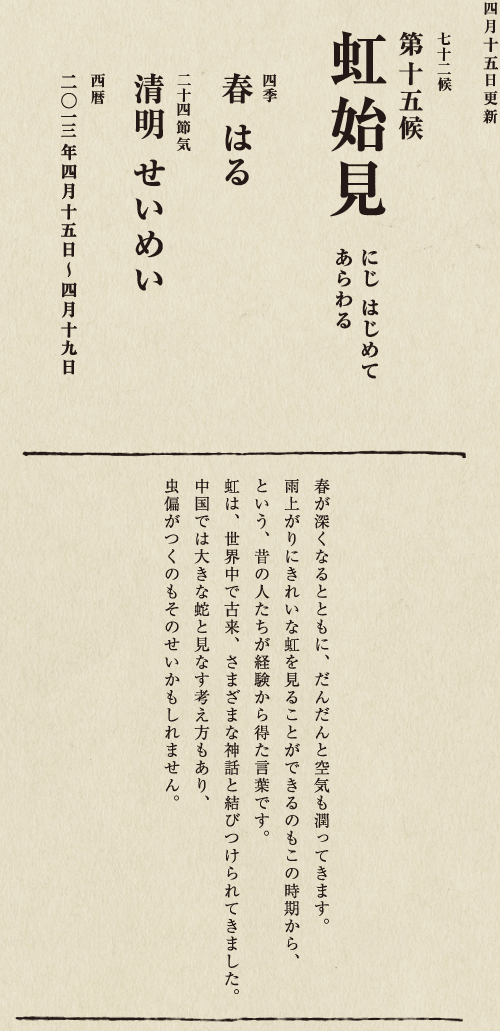 四月十五日更新
七十二候
第十五候
虹始見
にじ はじめて
あらわる
四季
春 はる
二十四節気
清明 せいめい
西暦
二〇一三年四月十五日~四月十九日
春が深くなるとともに、だんだんと空気も潤ってきます。
雨上がりにきれいな虹を見ることができるのもこの時期から、
という、昔の人たちが経験から得た言葉です。
虹は、世界中で古来、さまざまな神話と結びつけられてきました。
中国では大きな蛇と見なす考え方もあり、
虫偏がつくのもそのせいかもしれません。